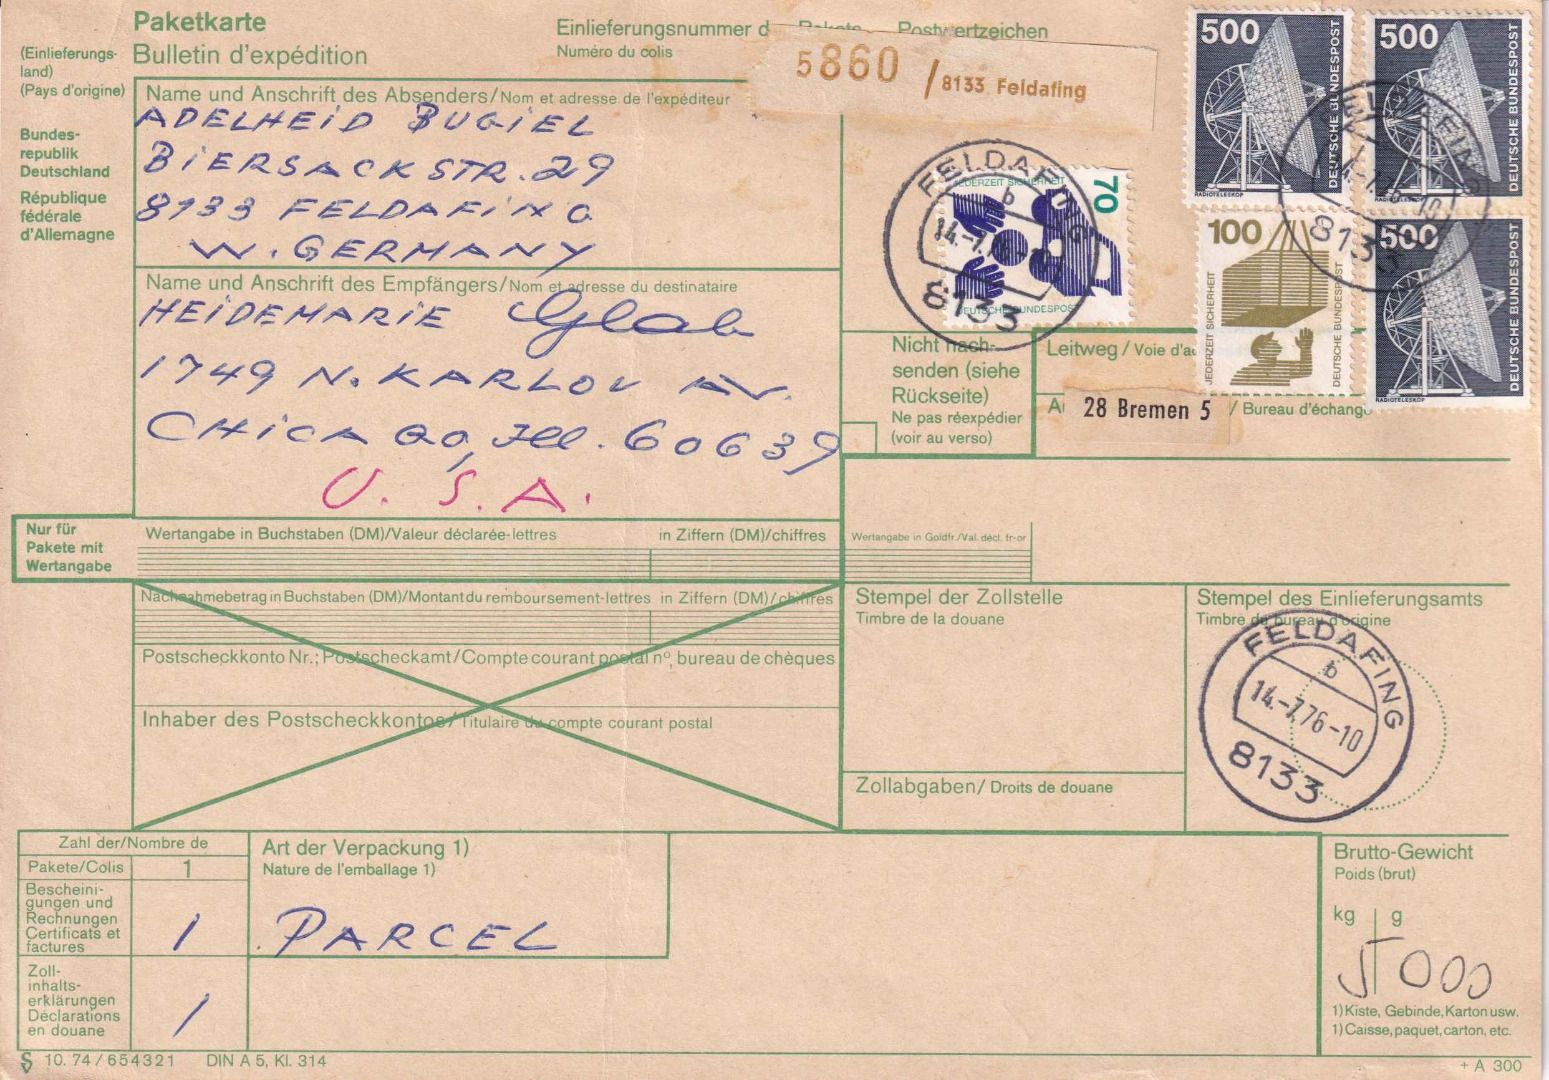 Paketkarte
Bulletin d'expédition
(Einlieferungs-
land)
(Pays d'origine)
Bundes-
republik
Deutschland
République
fédérale
d'Allemagne
Einlieferungsnummer d Pakete
Numéro du colis
Postwertzeichen
5860 / 8133 Feldafing
Name und Anschrift des Absenders/Nom et adresse de l'expéditeur
ADELHEID BUGIEL
BIERSACKSTR. 29
8133 FELDAFING
W. GERMANY
Name und Anschrift des Empfängers/Nom et adresse du destinataire
HEIDEMARIE Glab
1749 N. KARLOV AV.
CHICAGO, Ill. 60639
U. S. A.
500
DEUTSCHE BUNDESPOST
RADIOTELESKOP
500
DEUTSCHE BUNDESPOST
RADIOTELESKOP
500
DEUTSCHE BUNDESPOST
RADIOTELESKOP
100
JEDERZEIT SICHERHEIT
DEUTSCHE BUNDESPOST
70
JEDERZEIT SICHERHEIT
DEUTSCHE BUNDESPOST
FELDAFING
b
14.-7.
8133
FELDAFING
14.-7.76-10
8133
Nicht nach-
senden (siehe
Rückseite)
Ne pas réexpédier
(voir au verso)
Leitweg / Voie d'ac
28 Bremen 5
/ Bureau d'échange
Nur für
Pakete mit
Wertangabe
Wertangabe in Buchstaben (DM)/Valeur déclarée-lettres
in Ziffern (DM)/chiffres
Wertangabe in Goldfr./Val. décl. fr-or
Nachnahmebetrag in Buchstaben (DM)/Montant du remboursement-lettres
in Ziffern (DM)/chiffres
Postscheckkonto Nr.; Postscheckamt/Compte courant postal n°, bureau de chèques
Inhaber des Postscheckkontos/Titulaire du compte courant postal
Stempel der Zollstelle
Timbre de la douane
Stempel des Einlieferungsamts
Timbre du bureau d'origine
FELDAFING
b
14.-7.76-10
8133
Zollabgaben/Droits de douane
Zahl der/Nombre de
Pakete/Colis
1
Bescheini-
gungen und
Rechnungen
Certificats et
factures
1
Zoll-
inhalts-
erklärungen
Déclarations
en douane
1
Art der Verpackung 1)
Nature de l'emballage 1)
PARCEL
Brutto-Gewicht
Poids (brut)
kg g
5 000
1) Kiste, Gebinde, Karton usw.
1) Caisse, paquet, carton, etc.
10. 74 / 654321 DIN A 5, Kl. 314
+ A 300